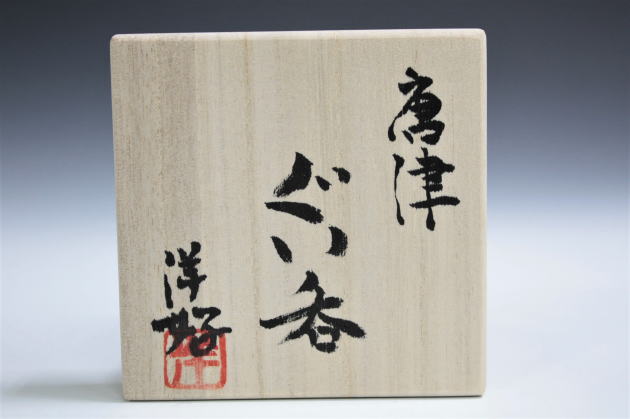 唐津
ぐい呑
洋好